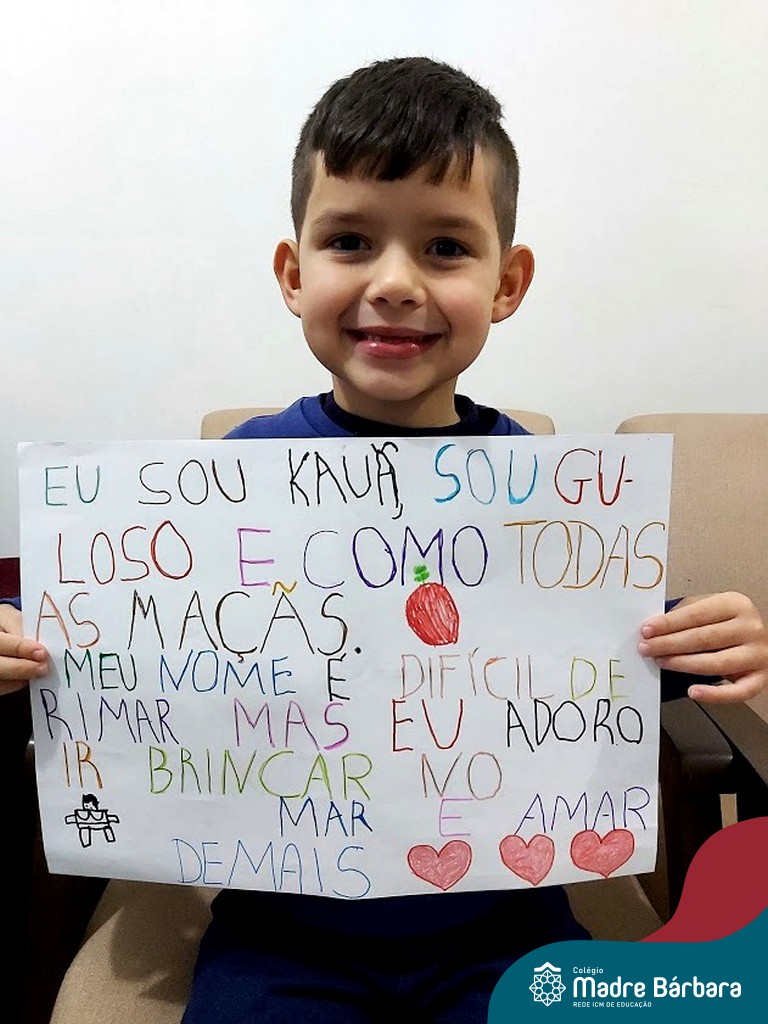 EU SOU KAUÃ, SOU GU-
LOSO E COMO TODAS
AS MAÇÃS.
MEU NOME É DIFÍCIL DE
RIMAR MAS EU ADORO
IR BRINCAR NO
MAR E AMAR
DEMAIS
Colégio
Madre Bárbara
REDE ICM DE EDUCAÇÃO